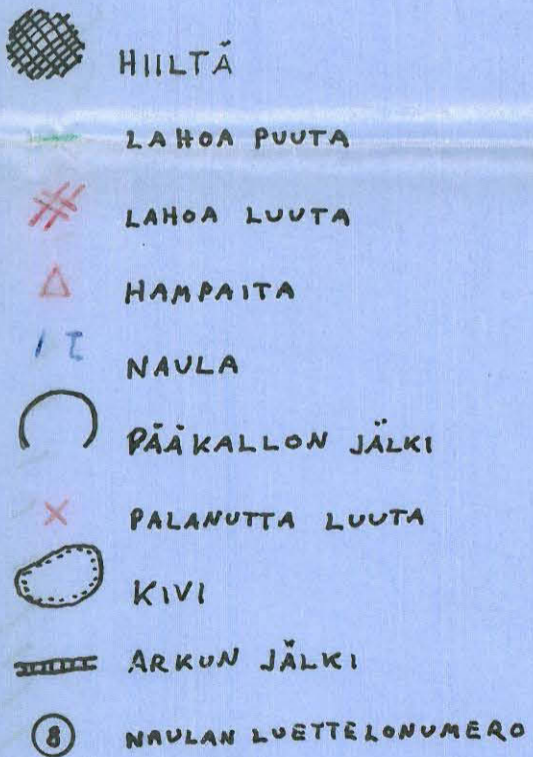 HIILTÄ
LAHOA PUUTA
LAHOA LUUTA
HAMPAITA
NAULA
PÄÄKALLON JÄLKI
PALANUTTA LUUTA
KIVI
ARKUN JÄLKI
8 NAULAN LUETTELONUMERO